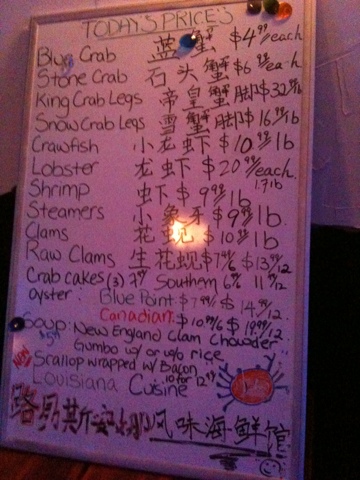 TODAY'S PRICES
Blue Crab 蓝蟹 $4.99/each
Stone Crab 石头蟹 $6.99/each
King Crab Legs 帝皇蟹脚 $32.99/lb
Snow Crab Legs 雪蟹脚 $16.99/lb
Crawfish 小龙虾 $10.99/lb
Lobster 龙虾 $20.99/each 1.7lb
Shrimp 虾 $9.99/lb
Steamers 小象牙 $9.99/lb
Clams 花蚬 $10.99/lb
Raw Clams 生花蚬 $7.99/6 $13.99/12
Crab cakes (3) Southern
Oyster: Blue Point $7.99/6 $14.99/12
Canadian $10.99/6 $19.99/12
Soup: New England Clam Chowder
Gumbo w/ or w/o rice
Scallop wrapped w/ Bacon
Louisiana Cuisine 10 for 12.99
路易斯安娜风味海鲜馆